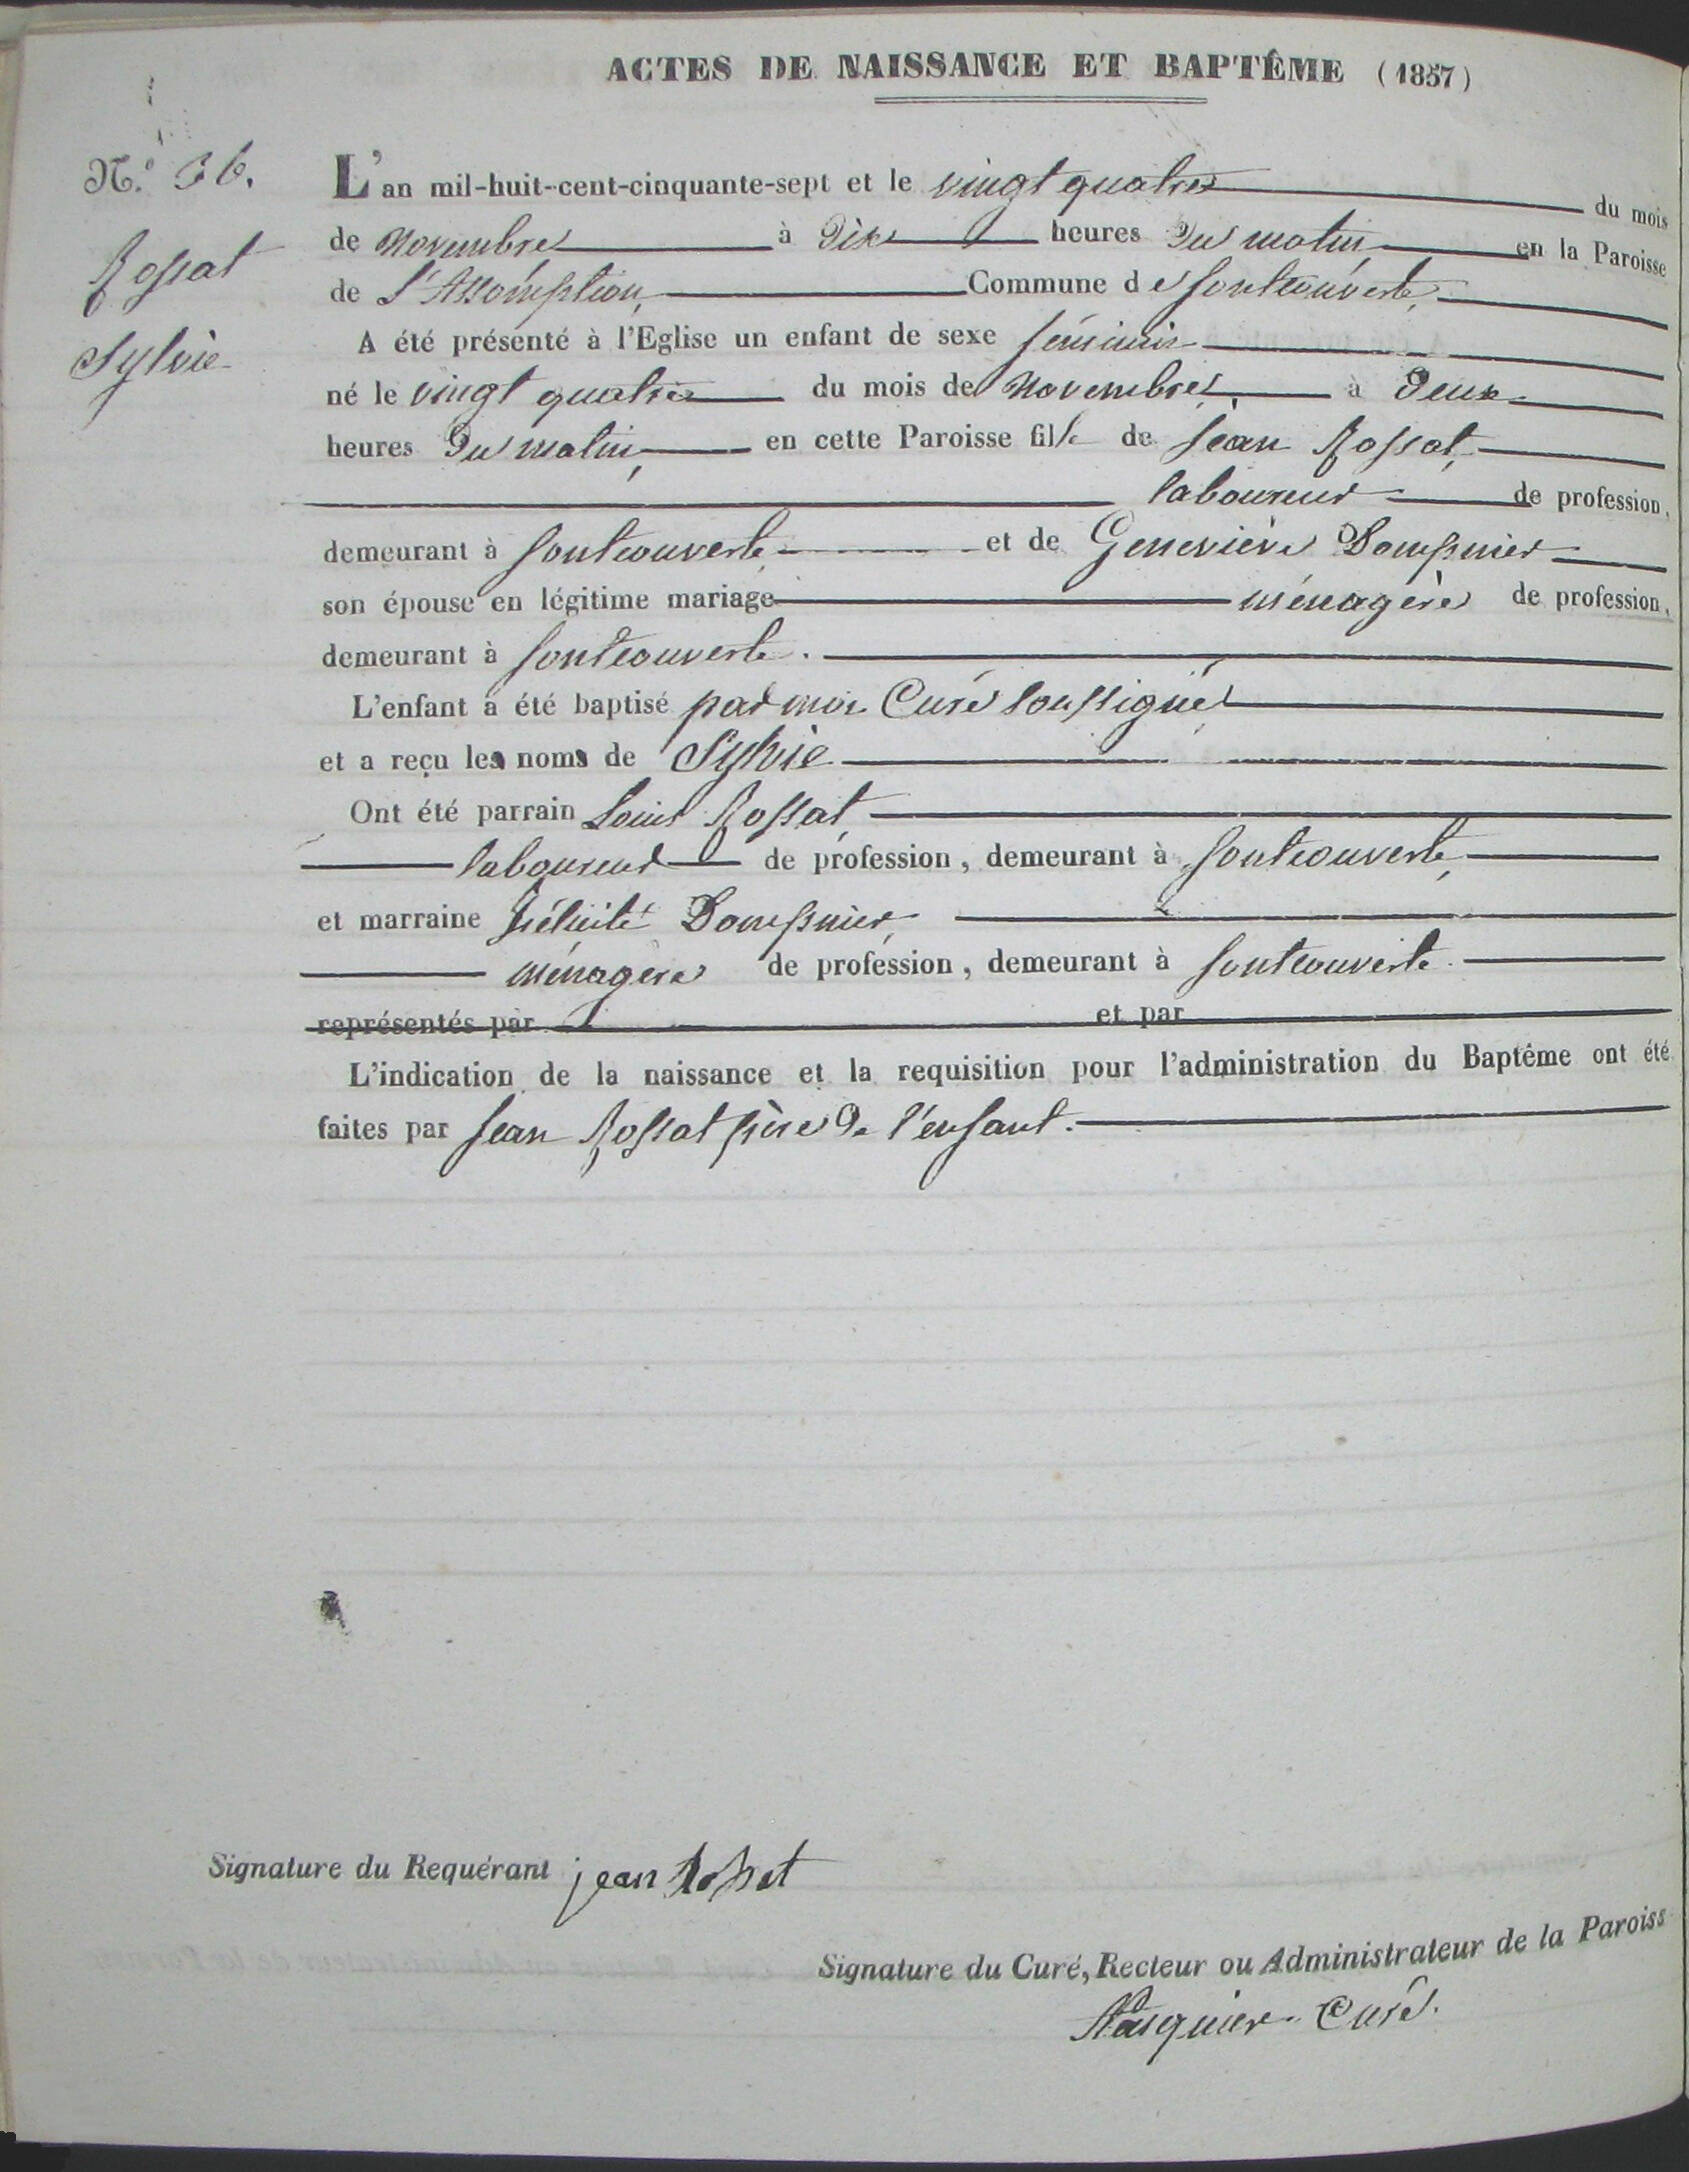 ACTES DE NAISSANCE ET BAPTÊME (1857)
N.º 36.
Rossat
Sylvie
L'an mil-huit-cent-cinquante-sept et le vingt quatre du mois
de Novembre à Dix heures Du matin, en la Paroisse
de L'Assomption, Commune de fontcouverte,
A été présenté à l'Eglise un enfant de sexe féminin
né le vingt quatre du mois de Novembre, à Deux
heures Du matin, en cette Paroisse fille de Jean Rossat,
laboureur de profession,
demeurant à fontcouverte, et de Geneviève Dompnier
son épouse en légitime mariage ménagère de profession,
demeurant à fontcouverte.
L'enfant a été baptisé par moi Curé soussigné
et a reçu les noms de Sylvie
Ont été parrain Louis Rossat,
laboureur de profession, demeurant à fontcouverte,
et marraine Félicité Dompnier,
ménagère de profession, demeurant à fontcouverte.
représentés par et par
L'indication de la naissance et la requisition pour l'administration du Baptême ont été
faites par Jean Rossat père De l'enfant.
Signature du Requérant jean Rossat
Signature du Curé, Recteur ou Administrateur de la Paroiss
Curé.